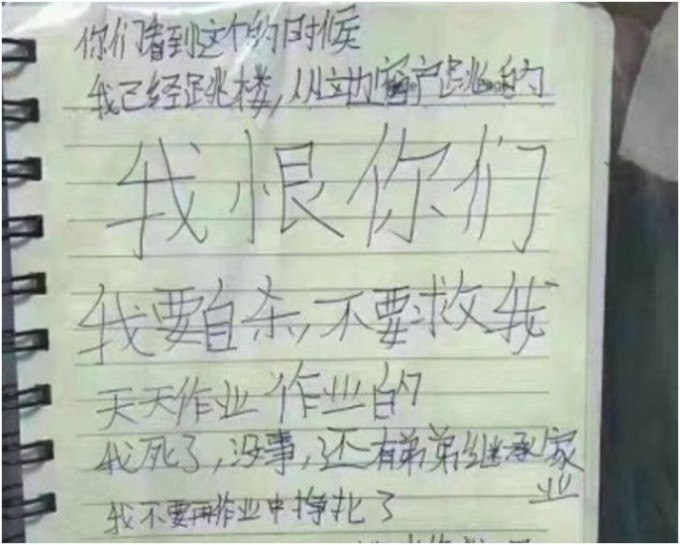 你们看到这个的时候
我已经跳楼,从这边窗户跳的
我恨你们
我要自杀,不要救我
天天作业作业的
我死了,没事,还有弟弟继承家业
我不要再作业中挣扎了